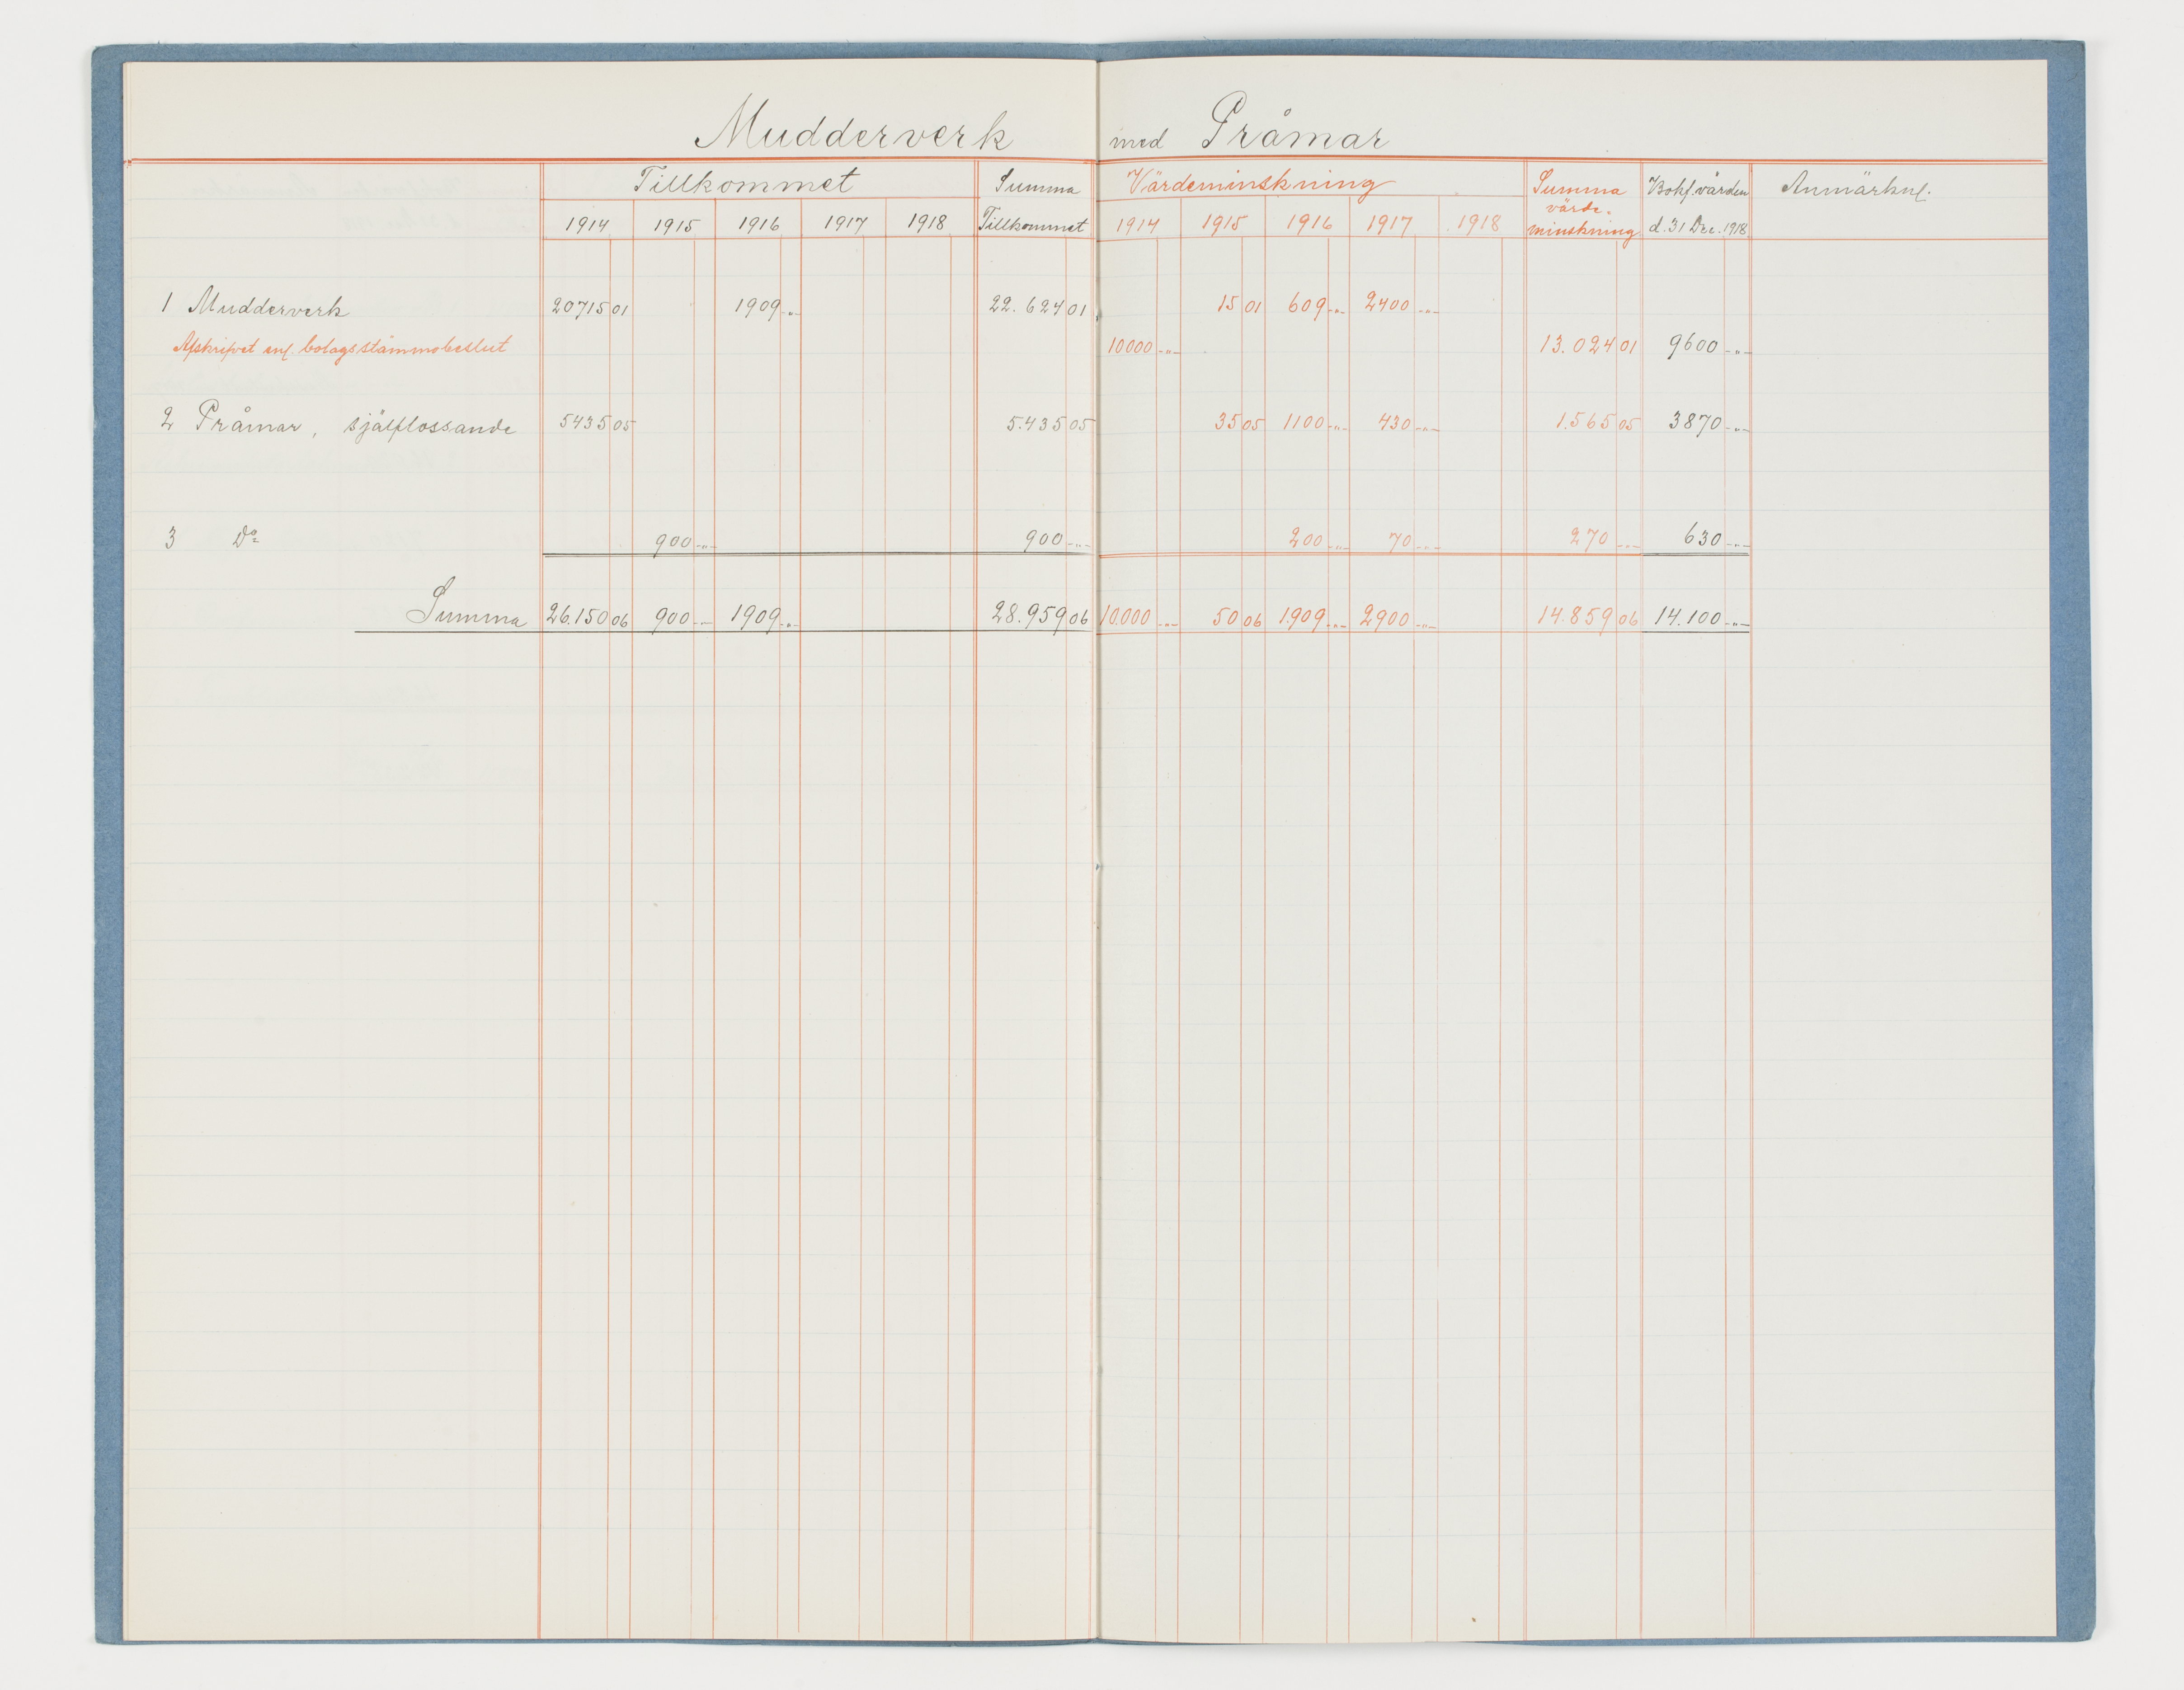 Mudderverk med Pråmar
Tillkommet Summa Värdeminskning Summa Bokf. värden Anmärkn.
värde-
1914 1915 1916 1917 1918 Tillkommet 1914 1915 1916 1917 1918 minskning d. 31 Dec. 1918
1 Mudderverk 20715 01 1909 -"- 22.624 01 15 01 609 -"- 2400 -"-
Afskrifvet enl. bolagsstämmobeslut 10000 -"- 13.024 01 9600 -"-
2 Pråmar, självlossande 5435 05 5.435 05 35 05 1100 -"- 430 -"- 1.565 05 3870 -"-
3 Do 900 -"- 900 -"- 200 -"- 70 -"- 270 -"- 630 -"-
Summa 26.150 06 900 -"- 1909 -"- 28.959 06 10.000 -"- 50 06 1.909 -"- 2900 -"- 14.859 06 14.100 -"-